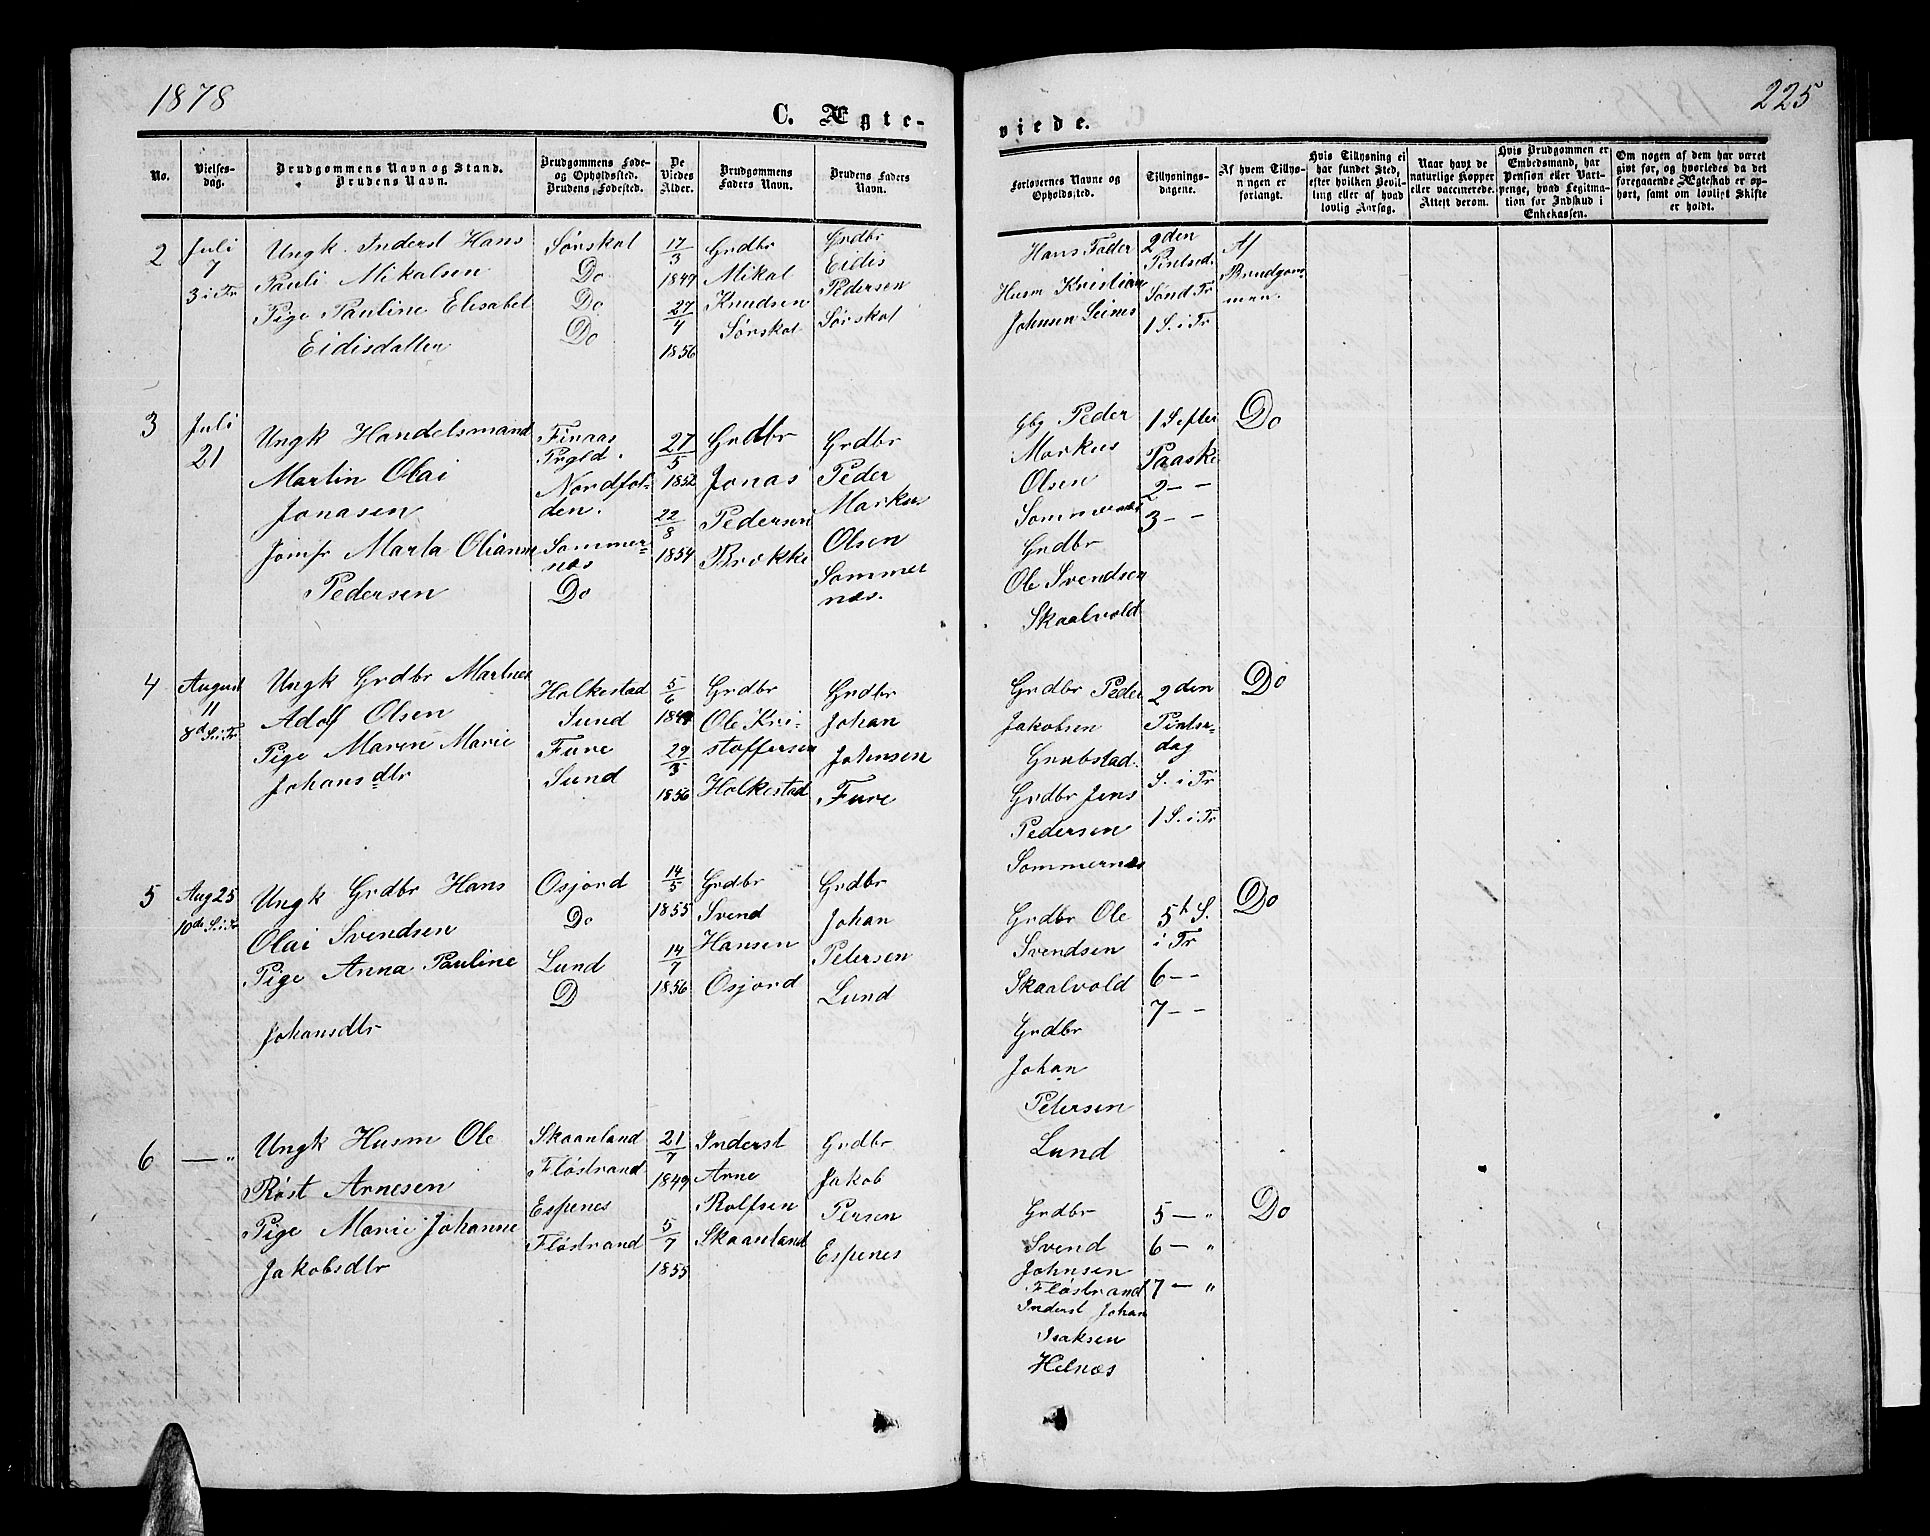 1878
225
C. Ægte-
viede.
No.
Vielses-
dag.
Brudgommens Navn og Stand.
Brudens Navn.
Brudgommens Føde-
og Opholdssted.
Brudens Fødested.
De
Viedes
Alder.
Brudgommens
Faders Navn.
Brudens Faders
Navn.
Forlovernes Navne og
Opholdssted.
Tillysnings-
dagene.
Af hvem Tillys-
ningen er
forlangt.
Hvis Tillysning ei
har fundet Sted,
efter hvilken Bevil-
ling eller af hvad
lovlig Aarsag.
Naar havt de
naturlige Kopper
eller vaccinerede.
Attest derom.
Hvis Brudgommen er
Embedsmand, har
Pension eller Vart-
penge, hvad Legitima-
tion for Indskud i
Enkekassen.
Om nogen af dem har været
givt før, og hvorledes da det
foregaaende Ægteskab er op-
hørt, samt om lovligt Skifte
er holdt.
2
Juli
7
3 i Tr
Ungk. Inderst Hans
Pauli Mikalsen
Pige Pauline Elisabet
Eidisdatter
Sørskot
Do
Do
Do
17/3
1849
27/4
1856
Grdbr
Mikal
Knudsen
Sørskot
Grdbr
Eidis
Pedersen
Sørskot
Hans Fader
Husm Kristian
Johnsen Seines
2den
Pintsed.
Sønd Tr
1 S. i Tr
Af
Brudgom-
men.
3
Juli
21
Ungk Handelsmand
Martin Olai
Jonasen
Jomfr Marta Olianna
Pedersen
Finaas
Prgld.
Nordfol-
den.
Sommer-
næs
Do
27/5
1852
22/8
1854
Grdbr
Jonas
Pedersen
Brokke
Grdbr
Peder
Markus
Olsen
Sommer
næs.
Gbg Peder
Markus
Olsen
Sommernæs
Grdbr
Ole Svendsen
Skaalvold
1 S efter
Paaske
2 — -
3 — -
Do
4
August
11
8d S. i Tr
Ungk Grdbr Martines
Adolf Olsen
Pige Maren Marie
Johansdtr
Holkestad
Sund
Fure
Sund
5/6
1849
29/3
1856
Grdbr
Ole Kri-
stoffersen
Holkestad
Grdbr
Johan
Johnsen
Fure
Grdbr Peder
Jakobsen
Grubstad.
Grdbr Jens
Pedersen
Sommernæs
2den
Pintse-
dag
S. i Tr
1 S. i Tr
Do
5
Aug 25
10de S. i Tr
Ungk Grdbr Hans
Olai Svendsen
Pige Anna Pauline
Johansdtr
Osjord
Do
Lund
D
14/5
1855
14/7
1856
Grdbr
Svend
Hansen
Osjord
Grdbr
Johan
Petersen
Lund
Grdbr Ole
Svendsen
Skaalvold
Grdbr
Johan
Petersen
Lund
5t S.
i Tr
6 — -
7 — -
Do
6
— "
Ungk Husm Ole
Røst Arnesen
Pige Marie Johanne
Jakobsdtr
Skaanland
Fløstrand
Espenes
Fløstrand
21/7
1849
5/7
1855
Inderst
Arne
Rolfsen
Skaanland
Grdbr
Jakob
Persen
Espenes
Grdbr
Svend
Johnsen
Fløstrand
Inderst Johan
Isaksen
Helnæs
5 — "
6 — "
7 — "
Do